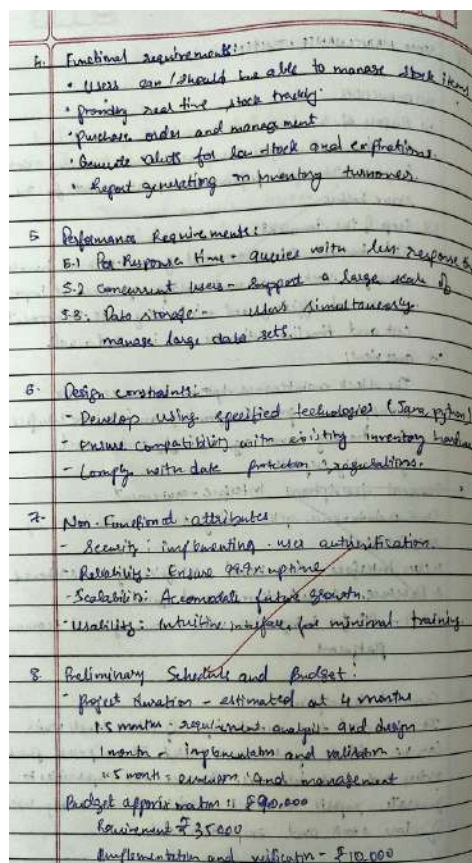 4. Functional requirements:
• Users can / should be able to manage stock items
• providing real time stock tracking.
• purchase order and management
• Generate alerts for low stock and expirations.
• Report generating inventory turnover.
5. Performance Requirements:
5.1 Response time - queries with less response
5.2 concurrent users - support a large scale of
5.3. Data storage - users simultaneously
manage large data sets.
6. Design constraints:
- Develop using specified technologies (Java, python)
- Ensure compatibility with existing inventory hardware
- Comply with date protection regulations.
7. Non-Functional attributes
- Security: implementing user
- Reliability: Ensure 99.9% uptime
- Scalability: Accomodate future growth.
- Usability: Intuitive interface, for minimal training.
8. Preliminary Schedule and Budget:
- Project duration - estimated at 4 months
1.5 months - requirement analysis and design
1 month - implementation and validation
1.5 month: and management
Budget : ₹90,000
₹35000
implementation and verification - ₹10,000